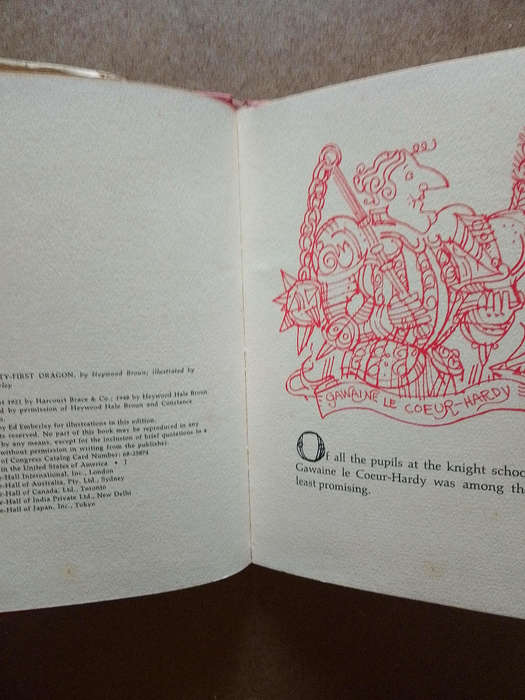 TY-FIRST DRAGON, by Heywood Broun; illustrated by
rley
t 1921 by Harcourt Brace & Co.; 1948 by Heywood Hale Broun
d by permission of Heywood Hale Broun and Constance
n.
by Ed Emberley for illustrations in this edition.
ts reserved. No part of this book may be reproduced in any
by any means, except for the inclusion of brief quotations in a
without permission in writing from the publisher.
of Congress Catalog Card Number: 68-25874
in the United States of America • J
e-Hall International, Inc., London
e-Hall of Australia, Pty. Ltd., Sydney
e-Hall of Canada, Ltd., Toronto
e-Hall of India Private Ltd., New Delhi
e-Hall of Japan, Inc., Tokyo
GAWAINE LE COEUR-HARDY
Of all the pupils at the knight schoo
Gawaine le Coeur-Hardy was among th
least promising.